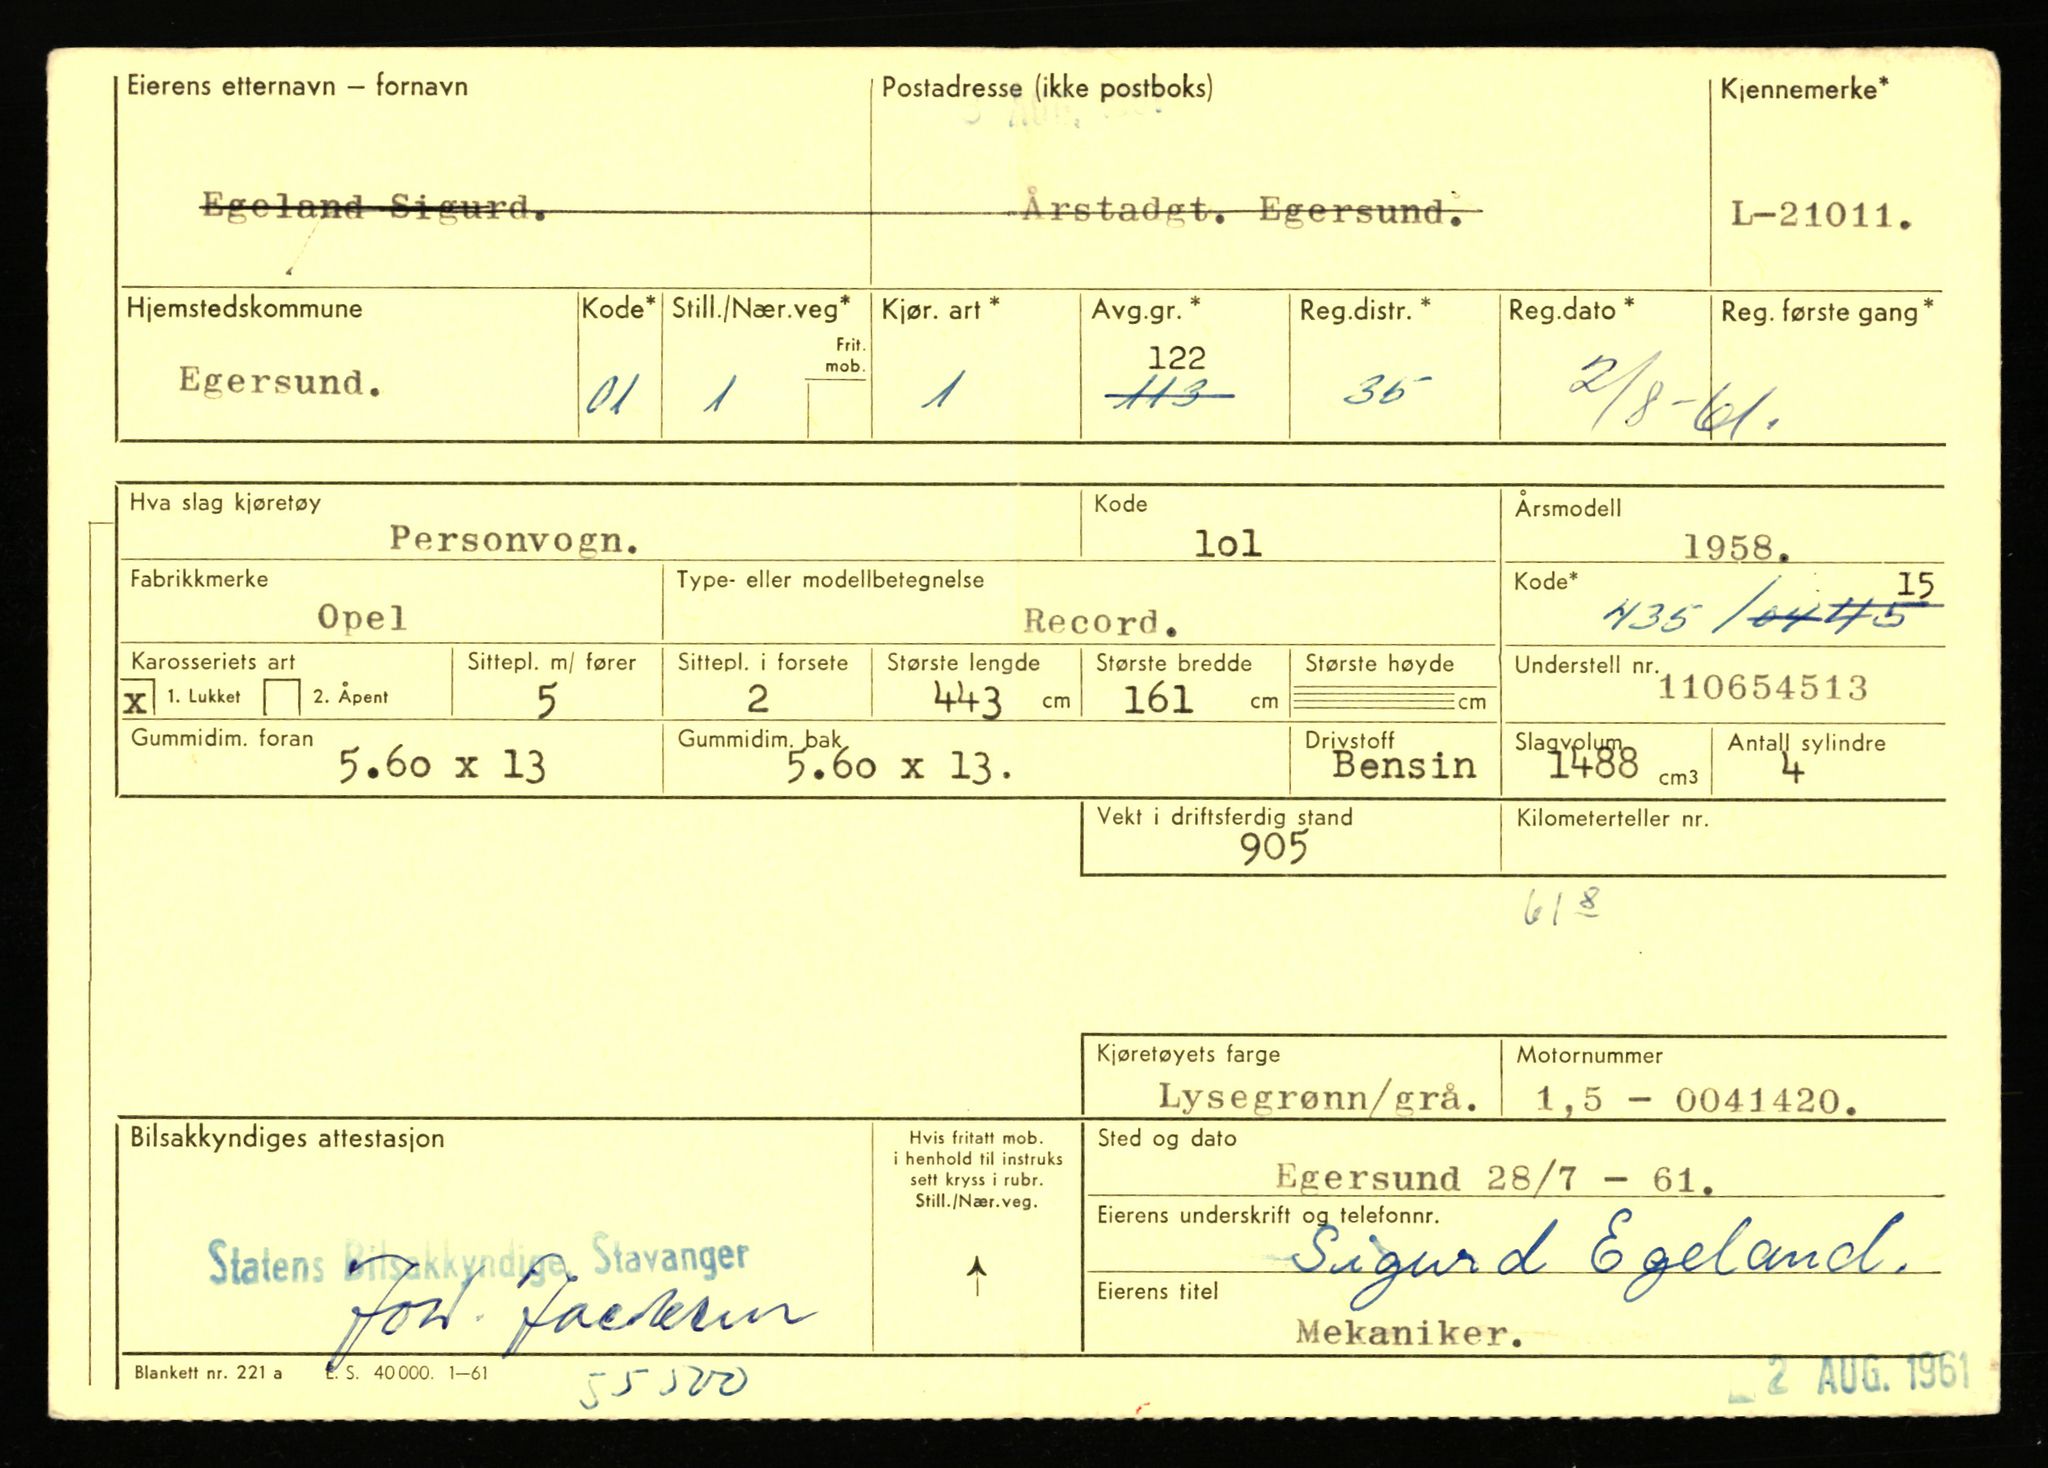 Eierens etternavn – fornavn Postadresse (ikke postboks) Kjennemerke*
Egeland Sigurd. Årstadgt. Egersund. L-21011.
Hjemstedskommune Kode* Still./Nær.veg* Kjør. art* Avg.gr.* Reg.distr.* Reg.dato* Reg. første gang*
Frit. mob. 122
Egersund. 01 1 1 113 35 2/8-61.
Hva slag kjøretøy Kode Årsmodell
Personvogn. lol 1958.
Fabrikkmerke Type- eller modellbetegnelse Kode* 15
Opel Record. 435 /
Karosseriets art Sittepl. m/ fører Sittepl. i forsete Største lengde Største bredde Største høyde Understell nr.
x 1. Lukket 2. Åpent 5 2 443 cm 161 cm cm 110654513
Gummidim. foran Gummidim. bak Drivstoff Slagvolum Antall sylindre
5.60 x 13 5.60 x 13. Bensin 1488 cm3 4
Vekt i driftsferdig stand Kilometerteller nr.
905
61 8
Kjøretøyets farge Motornummer
Lysegrønn/grå. 1,5 - 0041420.
Bilsakkyndiges attestasjon
Hvis fritatt mob.
i henhold til instruks
sett kryss i rubr.
Still./Nær.veg.
Sted og dato
Egersund 28/7 - 61.
Eierens underskrift og telefonnr.
Sigurd Egeland.
Statens Bilsakkyndige, Stavanger
Eierens titel
Mekaniker.
Blankett nr. 221 a E. S. 40 000. 1–61
55500
2 AUG. 1961